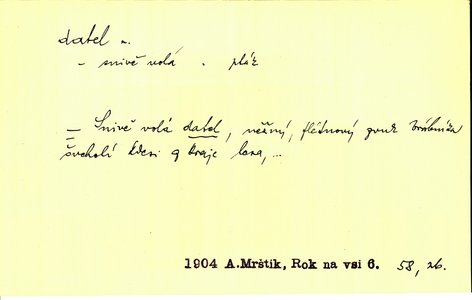 datel m.
– snivě volá . pták
– Snivě volá datel, něžný, flétnový zvuk
šveholí kdesi u kraje lesa, ...
1904 A.Mrštík, Rok na vsi 6. 58, 26.